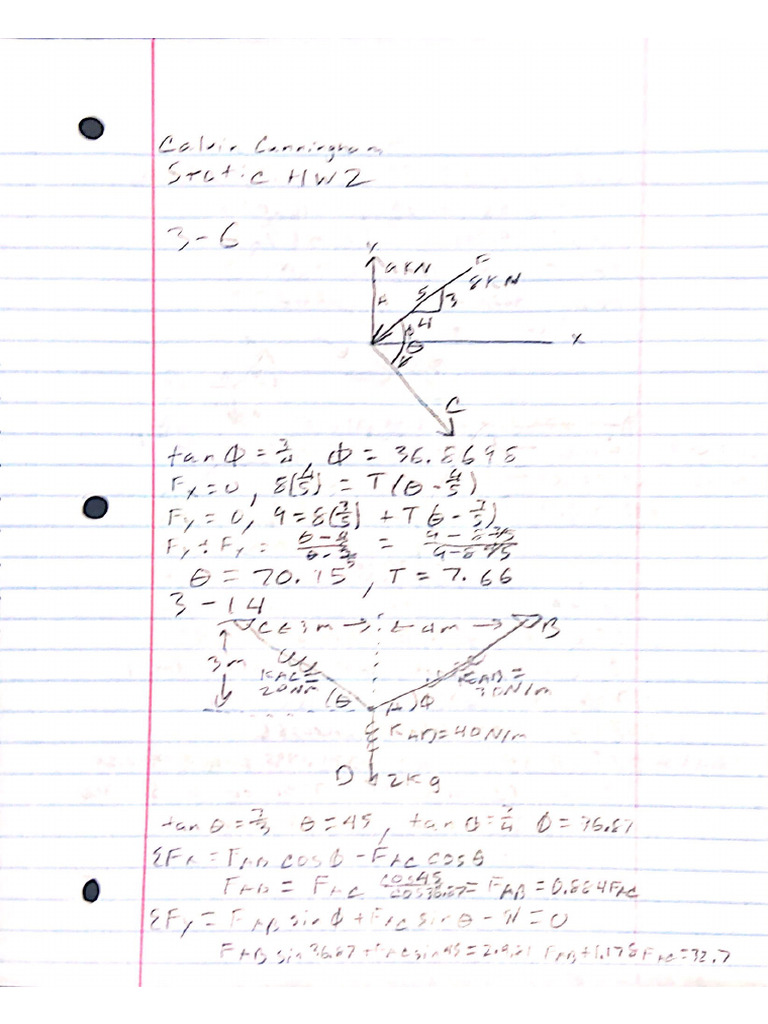 Calvin Cunningham
Static HW2
3-6
y
9KN
F
8KN
A
5
3
4
φ
θ
x
C
tan φ = 3/4, φ = 36.8698
Fx=0, 8(4/5) = T(θ - 4/5)
Fy=0, 9=8(3/5) + T(θ - 3/5)
θ = 70.15, T = 7.66
3-14
C ← 3m → ← 4m → B
3m
KAC= 20N/m
KAB= 30N/m
(θ A)φ
KAD=40N/m
D 2kg
tan θ = 3/3 θ=45, tan φ=3/4 φ=36.87
ΣFx = FAB cos φ - FAC cos θ
FAB = FAC cos45/cos36.87 = FAB = 0.884FAC
ΣFy = FAB sin φ + FAC sin θ - W = 0
FAB sin 36.87 + FAC sin 45 = 2·9.81 FAB+1.178FAC=32.7